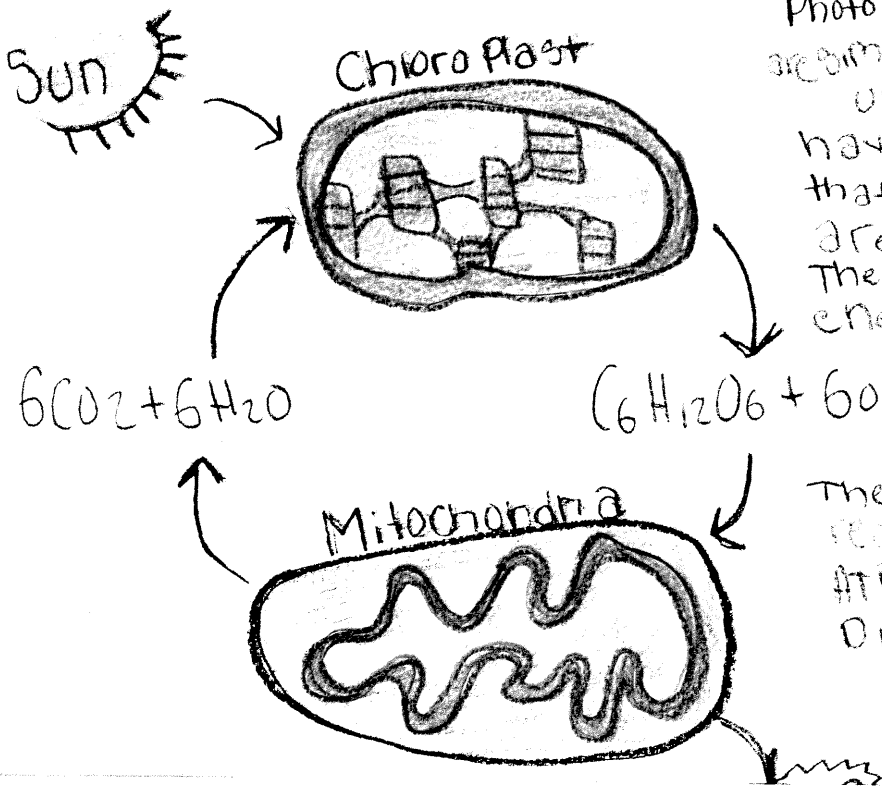 Sun
Chloroplast
Photo
are sim
U
hav
that
are
The
ene
6CO2+6H2O
C6H12O6 + 6O
The
Mitochondria
re
AT
D